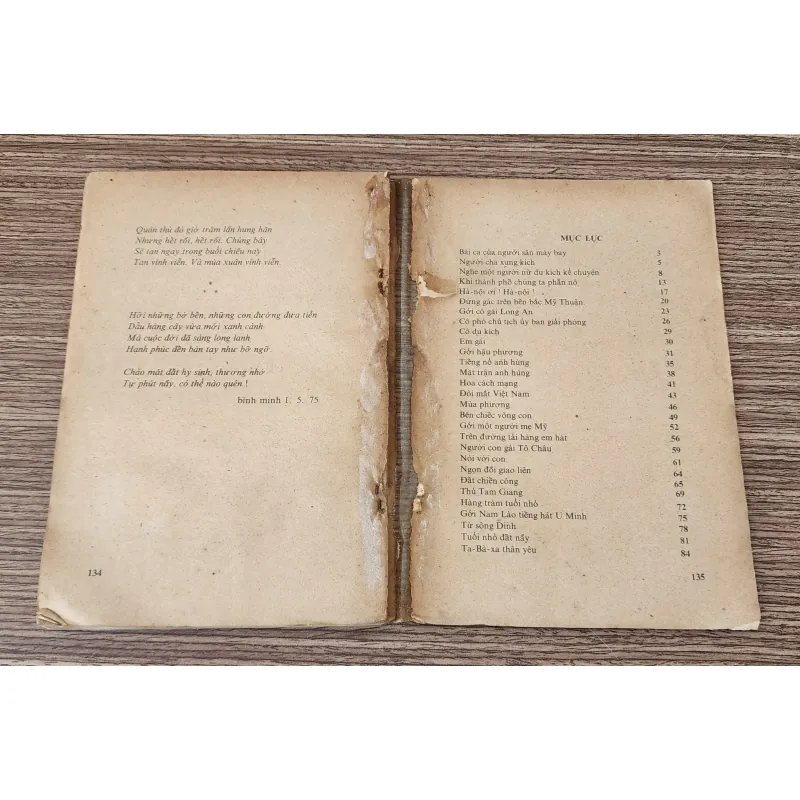 Quán thù đó giờ trăm lần hung hãn
Nhưng hết rồi, hết rồi. Chúng bây
Sẽ tan ngay trong buổi chiều nay
Tan vĩnh viễn. Và mùa xuân vĩnh viễn.
* *
Hỡi những bờ bến, những con đường đưa tiễn
Dẫu hàng cây vừa mới xanh cành
Mà cuộc đời đã sáng long lanh
Hạnh phúc đến bàn tay như bỡ ngỡ.
Chào mặt đất hy sinh, thương nhớ
Tự phút nầy, có thể nào quên !
bình minh 1. 5. 75
134
MỤC LỤC
Bài ca của người săn máy bay 3
Người cha xung kích 5
Nghe một người nữ du kích kể chuyện 8
Khi thành phố chúng ta phẫn nộ 13
Hà-nội ơi ! Hà-nội ! 17
Đứng gác trên bến bắc Mỹ Thuận 20
Gởi cô gái Long An 23
Cô phó chủ tịch ủy ban giải phóng 26
Cô du kích 29
Em gái 30
Gởi hậu phương 31
Tiếng nổ anh hùng 35
Mặt trận anh hùng 38
Hoa cách mạng 41
Đôi mắt Việt Nam 43
Mùa phương 46
Bên chiếc võng con 49
Gởi một người mẹ Mỹ 52
Trên đường tải hàng em hát 56
Người con gái Tô Châu 59
Nói với con 61
Ngọn đồi giao liên 64
Đất chiến công 65
Thủ Tam Giang 69
Hàng tràm tuổi nhỏ 72
Gởi Nam Lào tiếng hát U Minh 75
Từ sông Dinh 78
Tuổi nhỏ đất nầy 81
Ta-Bà-xa thân yêu 84
135